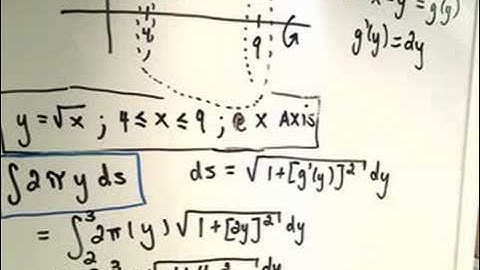 x = y² = g(y)
g'(y) = 2y
4 9
y = √x ; 4 ≤ x ≤ 9 ; @ x Axis
∫ 2π y ds
ds = √(1+[g'(y)]²) dy
= ∫₂³ 2π(y) √(1+[2y]²) dy